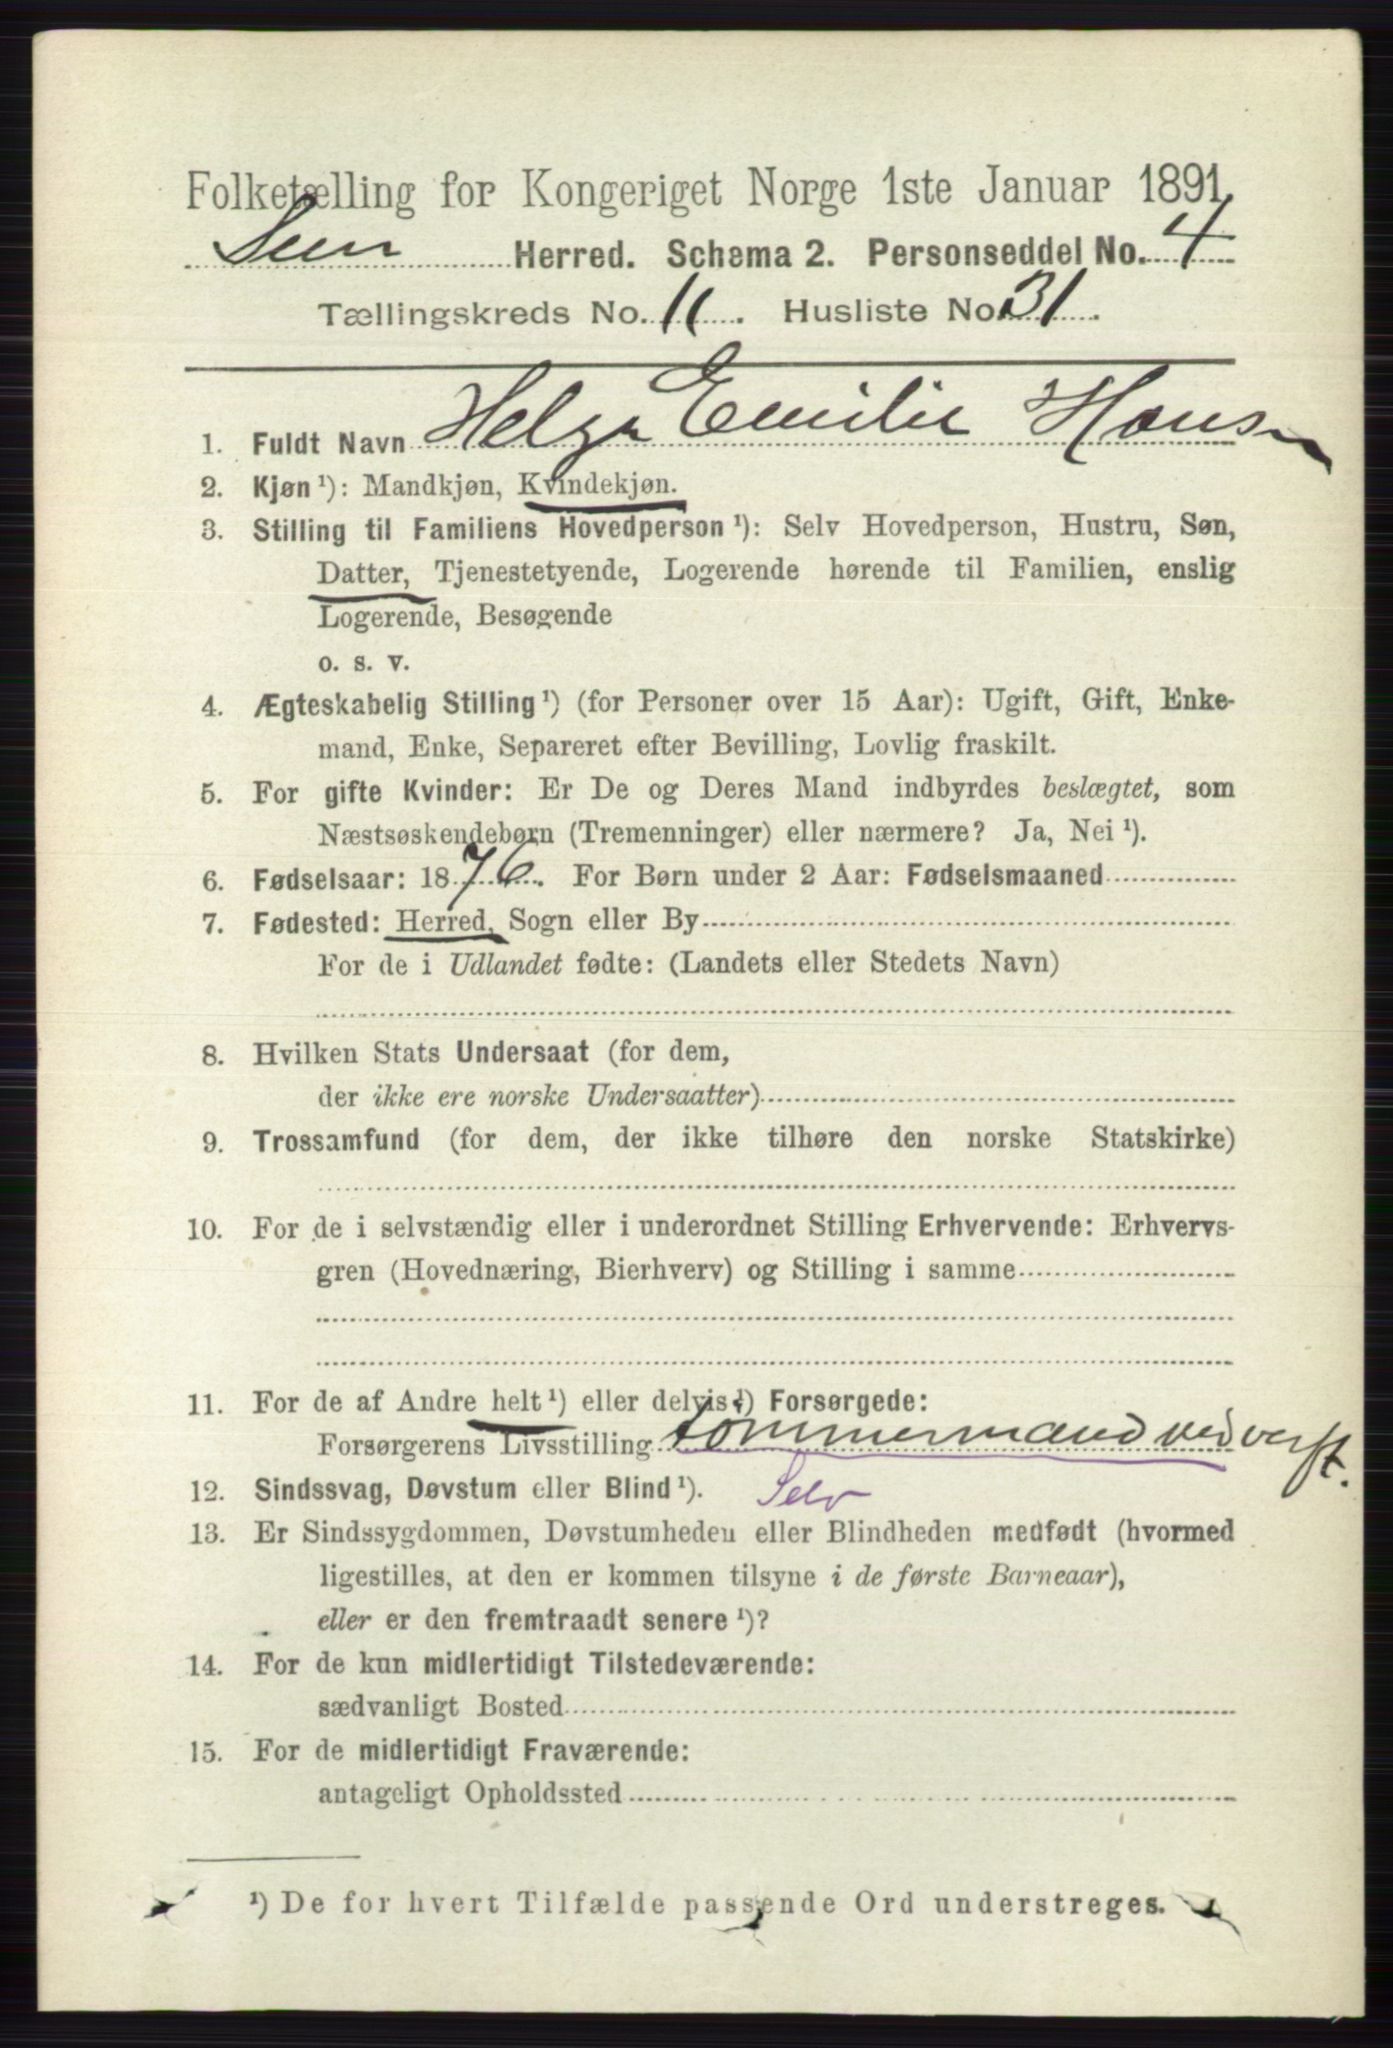 Folketælling for Kongeriget Norge 1ste Januar 1891.
Sem Herred. Schema 2. Personseddel No. 4
Tællingskreds No. 11. Husliste No. 31.
1. Fuldt Navn Helga Emilie Hansen
2. Kjøn ¹): Mandkjøn, Kvindekjøn.
3. Stilling til Familiens Hovedperson ¹): Selv Hovedperson, Hustru, Søn,
Datter, Tjenestetyende, Logerende hørende til Familien, enslig
Logerende, Besøgende
o. s. v.
4. Ægteskabelig Stilling ¹) (for Personer over 15 Aar): Ugift, Gift, Enke-
mand, Enke, Separeret efter Bevilling, Lovlig fraskilt.
5. For gifte Kvinder: Er De og Deres Mand indbyrdes beslægtet, som
Næstsøskendebørn (Tremenninger) eller nærmere? Ja, Nei ¹).
6. Fødselsaar: 1876. For Børn under 2 Aar: Fødselsmaaned
7. Fødested: Herred, Sogn eller By
For de i Udlandet fødte: (Landets eller Stedets Navn)
8. Hvilken Stats Undersaat (for dem,
der ikke ere norske Undersaatter)
9. Trossamfund (for dem, der ikke tilhøre den norske Statskirke)
10. For de i selvstændig eller i underordnet Stilling Erhvervende: Erhvervs-
gren (Hovednæring, Bierhverv) og Stilling i samme
11. For de af Andre helt ¹) eller delvis ¹) Forsørgede:
Forsørgerens Livsstilling tømmermand ved verft.
12. Sindssvag, Døvstum eller Blind ¹). Selv
13. Er Sindssygdommen, Døvstumheden eller Blindheden medfødt (hvormed
ligestilles, at den er kommen tilsyne i de første Barneaar),
eller er den fremtraadt senere ¹)?
14. For de kun midlertidigt Tilstedeværende:
sædvanligt Bosted
15. For de midlertidigt Fraværende:
antageligt Opholdssted
¹) De for hvert Tilfælde passende Ord understreges.